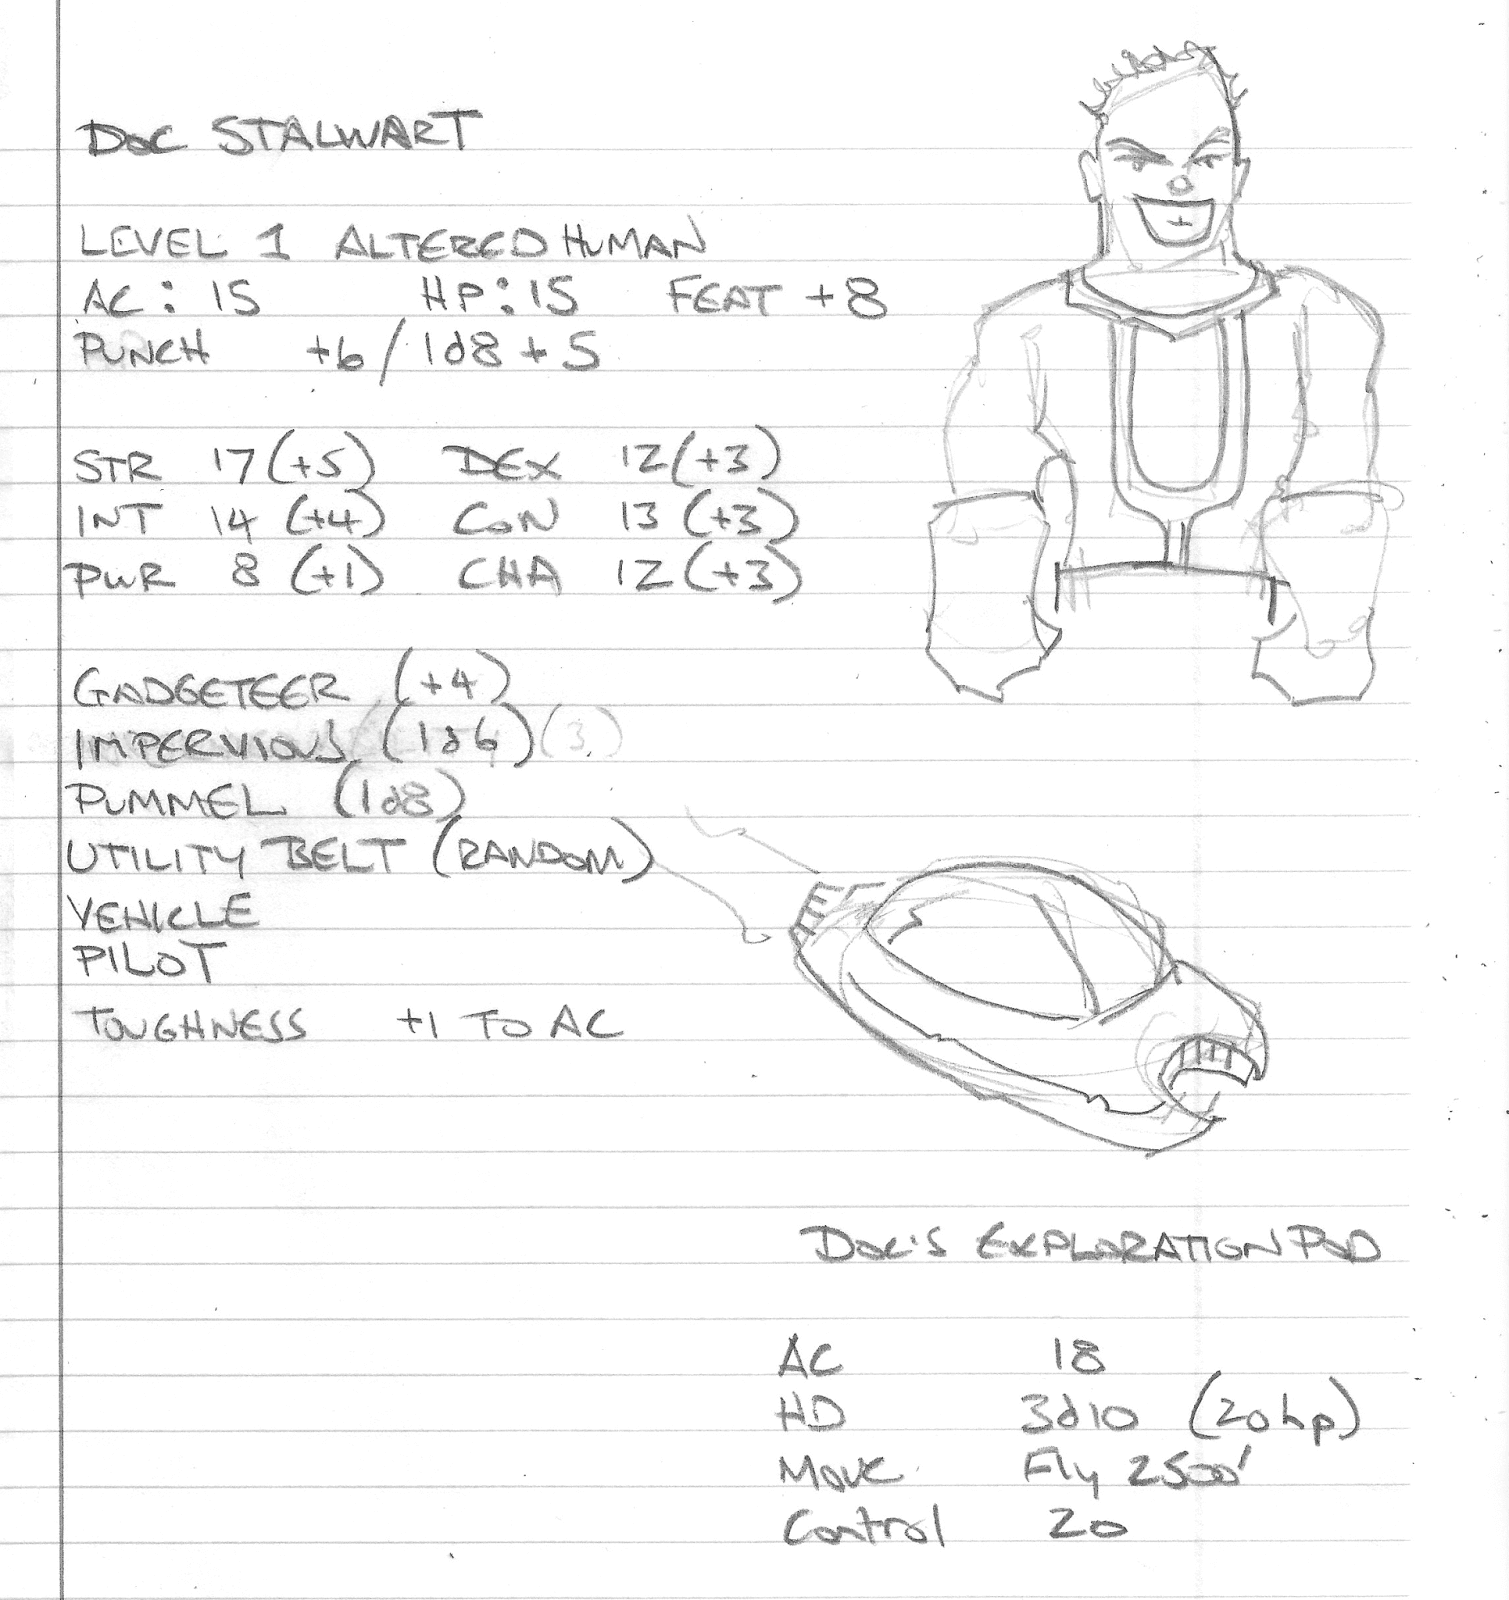 DOC STALWART
LEVEL 1 ALTERED HUMAN
AC: 15 HP: 15 FEAT +8
PUNCH +6/1d8+5
STR 17 (+5) DEX 12 (+3)
INT 14 (+4) CON 13 (+3)
PWR 8 (+1) CHA 12 (+3)
GADGETEER (+4)
IMPERVIOUS (1d6) (3)
PUMMEL (1d8)
UTILITY BELT (RANDOM)
VEHICLE
PILOT
TOUGHNESS +1 TO AC
DOC'S EXPLORATION POD
AC 18
HD 3d10 (20hp)
Move Fly 2500'
Control 20